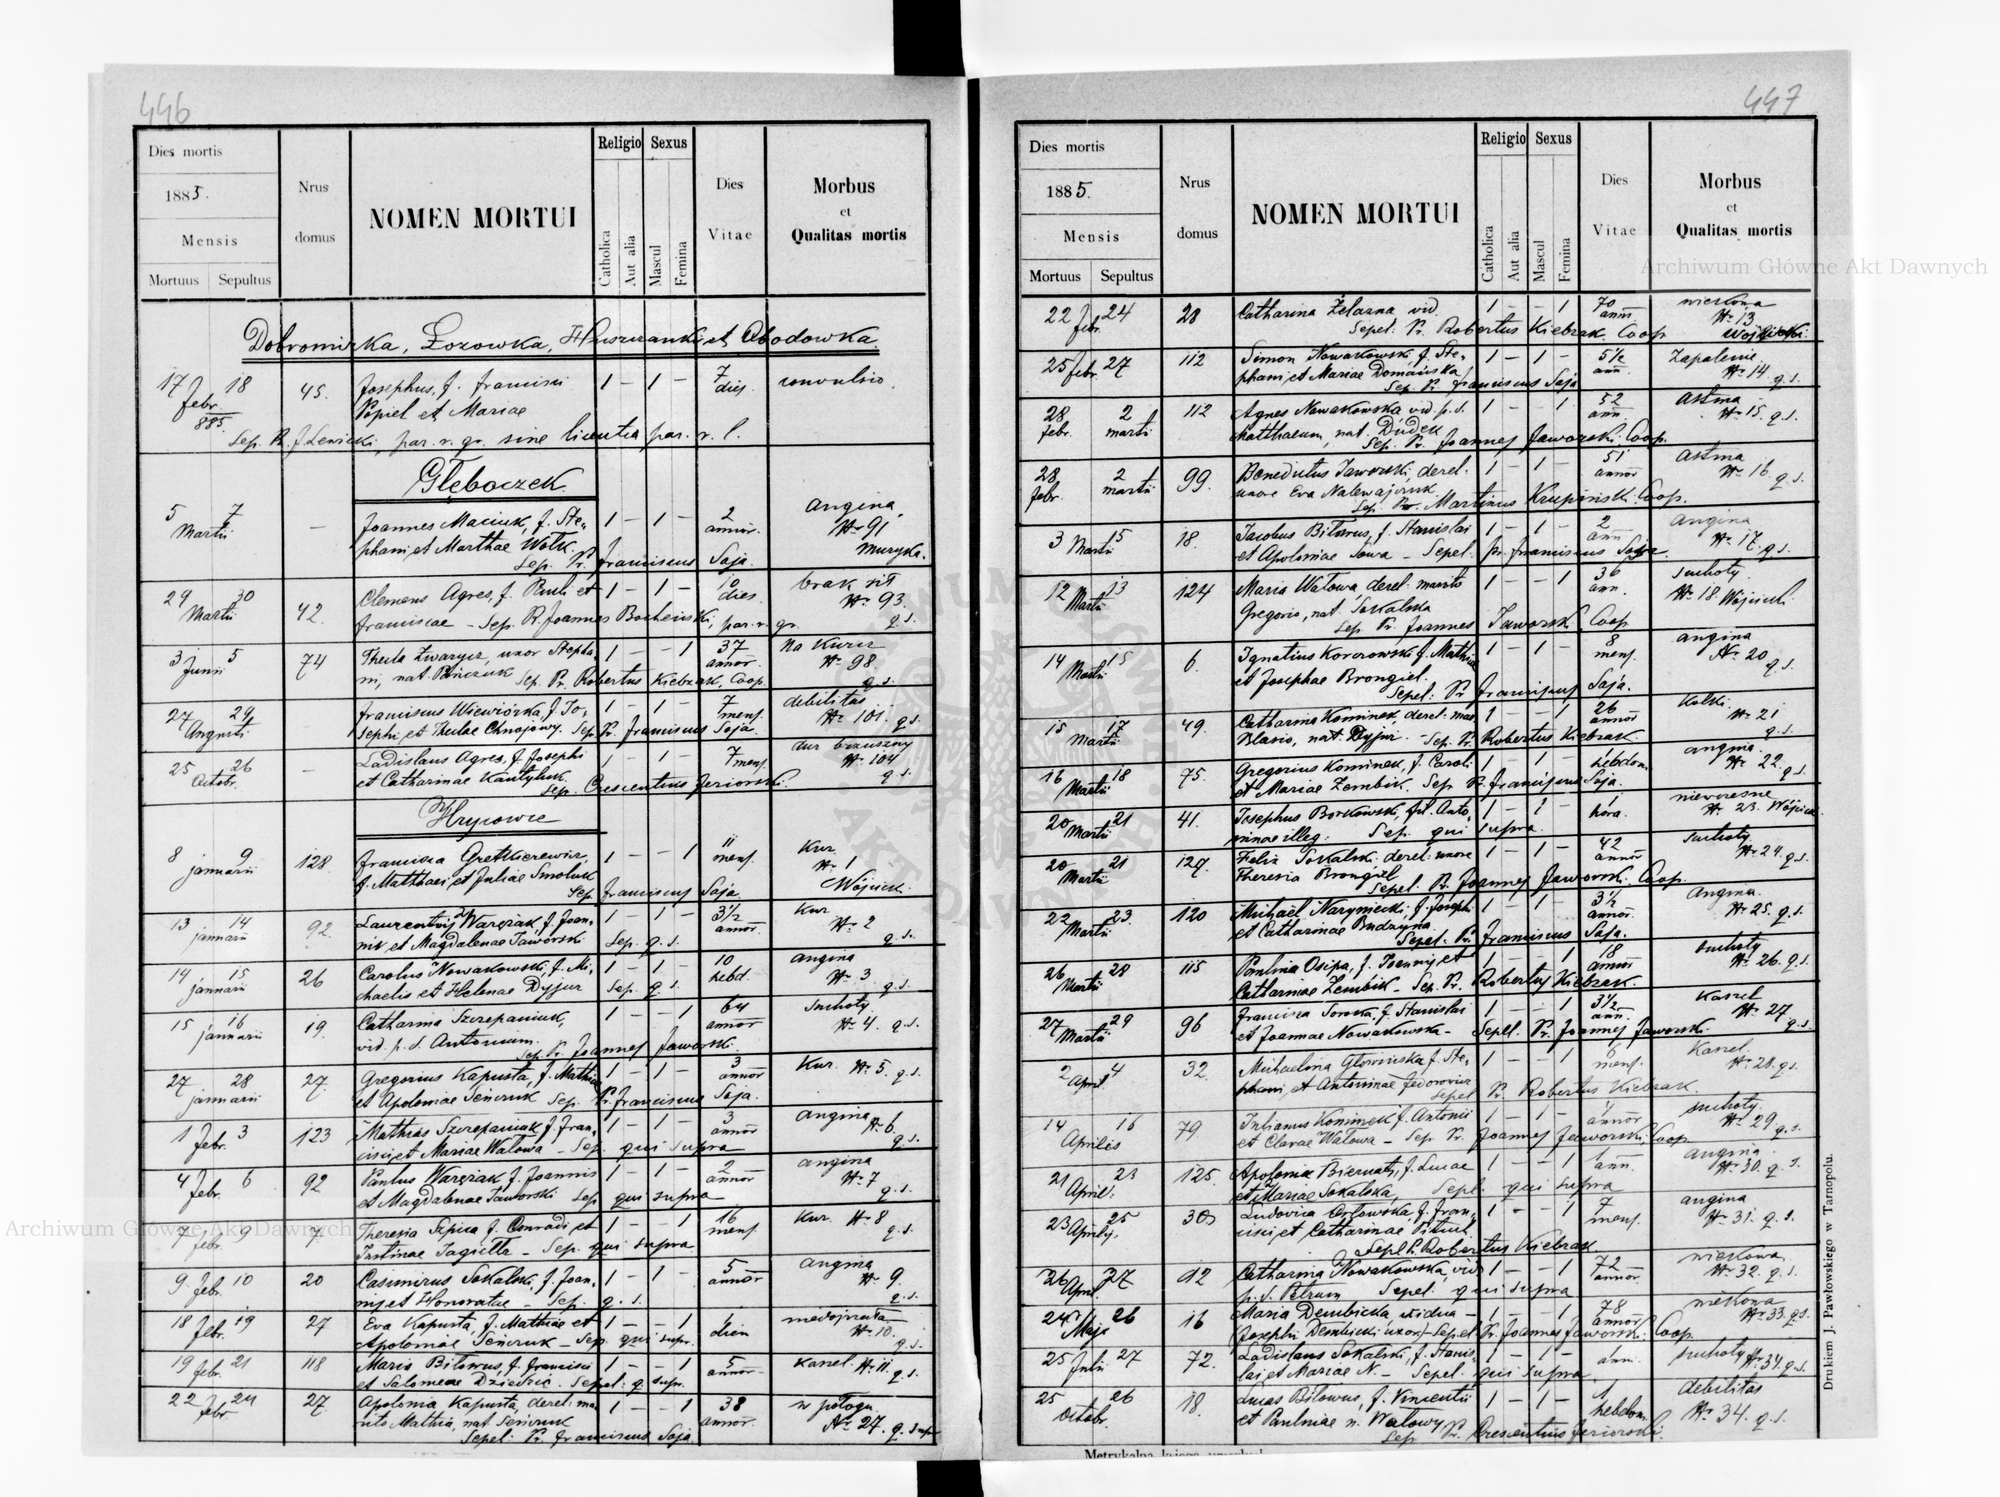 446
Dies mortis
1885.
Mensis
Mortuus Sepultus
Nrus
domus
NOMEN MORTUI
Religio
Catholica
Aut alia
Sexus
Mascul
Femina
Dies
Vitae
Morbus
et
Qualitas mortis
Dobromirka, Łozowka, et
17 18 45. Josephus, f. Francisci 1 – 1 – 7 convulsio
Febr. Popiel et Mariae dies.
885
Sep. R. J. Lewicki, par. r. gr. sine licentia par. r. l.
Głęboczek
5 7 – Joannes Maciuk, f. Ste- 1 – 1 – 2 angina,
Martii phani et Marthae Wołk. annor. Nr 91
Sep. Pr. Franciscus Saja. Muzyka.
29 30 42. Clemens Agres, f. Pauli et 1 – 1 – 10 brak sił
Martii Franciscae – Sep. R. Joannes Bocheński, par. r. gr. dies. Nr 93. q. s.
3 5 74 Thecla Zwarycz, uxor Stepha- 1 – – 1 37
Junii ni, nat. Sep. Pr. Robertus Kiebzak, Coop. annor. Nr 98. q. s.
27 29 Franciscus Wiewiórka, f. Jo- 1 – 1 – 7 debilitas
Augusti sephi et Theclae Sep. Pr. Franciscus Saja. mens. Nr 101. q. s.
25 26 – Ladislaus Agres, f. Josephi 1 – 1 – 7 mens. dur brzuszny
Octobr. et Catharinae Nr 104
Sep. Crescentius Jeziorski. q. s.
Hrycowce
8 9 128. Francisca 1 – – 1 11 Kur
januarii f. Matthaei et Juliae Smoluk mens. Nr 1
Sep. Franciscus Saja. Wójcicki.
13 14 92. Laurentius Waręzak, f. Joan- 1 – 1 – 3 1/2 Kur
januarii nis et Magdalenae Jaworski Sep. q. s. annor. Nr 2 q. s.
14 15 26 Carolus Nowakowski, f. Mi- 1 – 1 – 10 angina
januarii chaelis et Helenae Dyjur Sep. q. s. hebd. Nr 3. q. s.
15 16 19. Catharina Szczepaniuk, 1 – – 1 64 Suchoty
januarii vid. p. d. Antonium. annor Nr 4. q. s.
Sep. Pr. Joannes Jaworski.
27 28 27. Gregorius Kapusta, f. Mathiae 1 – 1 – 3 Kur. Nr 5. q. s.
januarii et Apoloniae Seńczuk Sep. Pr. Franciscus Saja. annor
1 Febr. 3 123 Mathias Szczepaniak f. Fran- 1 – 1 – 3 angina Nr 6.
cisci et Mariae Watowa – Sep. qui supra annor q. s.
4 Febr. 6 92 Paulus Waręzak f. Joannis 1 – 1 – 2 angina
et Magdalenae Jaworski Sep. qui supra annor Nr 7 q. s.
7 Febr. 9 7. Theresia Szpica f. Conradi et 1 – – 1 16 Kur. Nr 8
Justinae Jagiełła – Sep. qui supra mens. q. s.
9 Febr. 10 20 Casimirus Sokalski, f. Joan- 1 – 1 – 5 angina
nis et Honoratae – Sep. q. s. annor Nr 9. q. s.
18 Febr. 19 27 Eva Kapusta, f. Mathiae et 1 – – 1 1
Apoloniae Seńczuk – Sep. qui supr. Nr 10. q. s.
19 Febr. 21 118 Maria Bilowus, f. Francisci 1 – – 1 5 kaszel. Nr 11.
et Salomeae Dziedzic. Sepel. q. supr. annor q. s.
22 24 27. Apolonia Kapusta, derel. ma- 1 – – 1 38 w połogu.
Febr rito Mathia, nat. Seńczuk annor. q. supr.
Sepel: Pr. Franciscus Saja.
447
Dies mortis
1885.
Mensis
Mortuus Sepultus
Nrus
domus
NOMEN MORTUI
Religio
Catholica
Aut alia
Sexus
Mascul
Femina
Dies
Vitae
Morbus
et
Qualitas mortis
22 Febr. 24 28 Catharina Żelazna vid. 1 – – 1 70 annor
Sepel: Pr. Robertus Kiebzak Coop. Nr 13
25 Febr. 27 112 Simon Nowakowski, f. Ste- 1 – 1 – 5 1/2 Zapalenie.
phani, et Mariae Domańska ann. Nr 14.
Sep. Pr. Franciscus Saja q. s.
28 2 112 Agnes Nowakowska vid. p. d. 1 – – 1 52 astma
febr. martii Matthaeum, nat. Dudek ann. Nr 15. q. s.
Sep. Pr. Joannes Jaworski. Coop.
28 2 99. Benedictus Jaworski, derel. 1 – 1 – 51 astma
febr. martii uxore Eva Nalewajczuk annor Nr 16. q. s.
Sep. Pr. Martinus Krupiński. Coop.
3 Martii 5 18. Jacobus Bilowus, f. Stanislai 1 – 1 – 2 angina
et Apoloniae Sowa – Sepel. Pr. Franciscus Saja. ann Nr 17. q. s.
12 13 124 Maria Watowa derel. marito 1 – – 1 36 Suchoty.
Martii Gregorio, nat. Sokalska ann. Nr 18. Wójcicki
Sep. Pr. Joannes Jaworski, Coop.
14 15 6. Ignatius f. Mathiae 1 – 1 – 8 angina
Martii et Josephae Brongiel. mens. Nr 20
Sepel: Pr. Franciscus Saja. q. s.
15 17 49. Catharina Kominek, derel. mar. 1 – – 1 26 Kolki.
Martii Blasio, nat. Dyjur. – Sep. Pr. Robertus Kiebzak annor Nr 21 q. s.
16 18 75. Gregorius Kominek, f. Caroli 1 – 1 – angina.
Martii et Mariae Zembik. Sep. Pr. Franciscus Saja. hebdom. Nr 22. q. s.
20 21 41. Josephus Borkowski, fil. Anto- 1 – 1 – 1
Martii ninae illeg. Sep. qui supra. hora. Nr 23. Wójcicki
20 21 127. Felix Sokalski derel. uxore 1 – 1 – 42 Suchoty
Martii Theresia Brongiel annor Nr 24. q. s.
Sepel. Pr. Joannes Jaworski. Coop.
22 23. 120 Michaël f. Josephi 1 – 1 – 3 1/2 Angina.
Martii et Catharinae Budzyna. annor. Nr 25. q. s.
Sepel. Pr. Franciscus Saja.
26 28 115 Paulina Osipa, f. Joannis et 1 – – 1 18 suchoty
Martii Catharinae Zembik – Sep. Pr. Robertus Kiebzak. annor Nr 26. q. s.
27 29 96 Francisca Soroka, f. Stanislai 1 – – 1 3 1/2 Kaszel
Martii et Joannae Nowakowska – Sepel. Pr. Joannes Jaworski. ann. Nr 27 q. s.
2 April 4 32. Michaelina Głowińska f. Ste- 1 – – 1 6 Kaszel.
phani, et Antoninae Fedorowicz mens. Nr 28. q. s.
Sepel Pr. Robertus Kiebzak
14 16 79. Julianus Kominek f. Antonii 1 – 1 – suchoty.
Aprilis et Clarae Watowa – Sep. Pr. Joannes Jaworski. Coop annor Nr 29. q. s.
21 April. 23 125. Apolonia f. Lucae 1 – – 1 1 angina
et Mariae Sokalska, Sepel. qui supra ann. Nr 30. q. s.
23 25 Ludovica Orłowska, f. Fran- 1 – – 1 7 angina
cisci et Catharinae mens. Nr 31. q. s.
Sepel. P. Robertus Kiebzak
26 27 Catharina Nowakowska, vid. 1 – – 1 72
April. p. d. Petrum Sepel. qui supra annor. Nr 32. q. s.
24 Maja 26 16 Maria Dembicka vidua – 1 – – 1 78
(Josephi Dembicki uxor) – Sepel. Pr. Joannes Jaworski. Coop. annor Nr 33. q. s.
25 Julii 27 72. Ladislaus Sokalski, f. Stanis- 1 – 1 – suchoty
lai et Mariae N. – Sepel. qui supra ann. Nr 34. q. s.
25 26 18. Lucas Bilowus, f. Vincentii 1 – 1 – 1 debilitas
Octobr. et Paulinae n. Watowy hebdom. Nr 34. q. s.
Sep. Pr. Crescentius Jeziorski.
Drukiem J. Pawłowskiego w Tarnopolu.
Archiwum Główne Akt Dawnych
Archiwum Główne Akt Dawnych